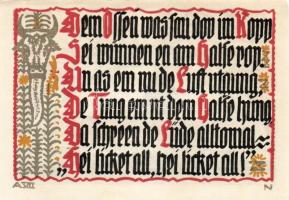 Dem Ossen was sau don im Kopp
Sei wünnen en am Halse rop.
Un as em nu de Luft utgung,
De Tung em ut dem Halse hüng,
Da schreen de Lüde alltomal
„Hei licket all, hei licket all!“
ASIII
N